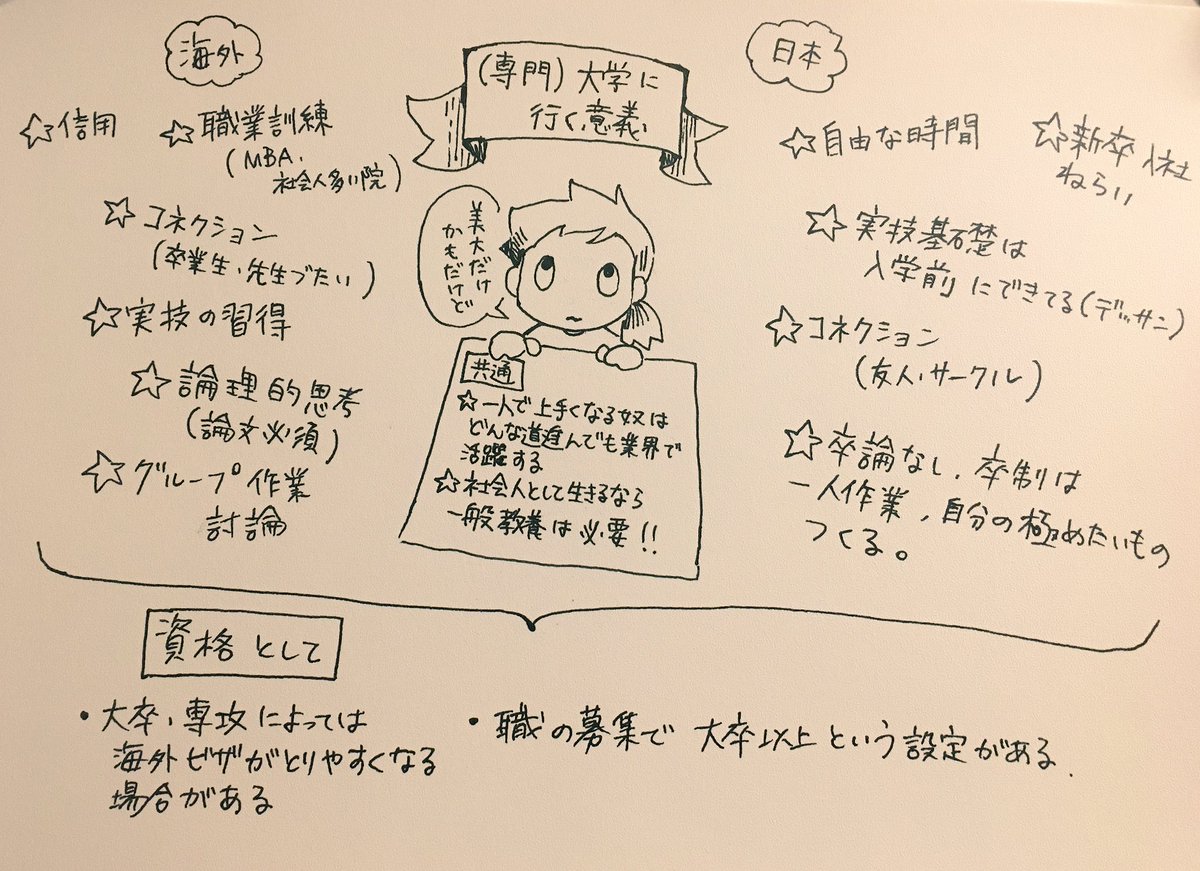 (専門)大学に
行く意義
海外
☆信用
☆職業訓練
(MBA、
社会人多い院)
☆コネクション
(卒業生、先生づたい)
☆実技の習得
☆論理的思考
(論文必須)
☆グループ作業
討論
美大だけ
かもだけど
共通
☆一人で上手くなる奴は
どんな道進んでも業界で
活躍する
☆社会人として生きるなら
一般教養は必要!!
日本
☆自由な時間
☆新卒入社
ねらい
☆実技基礎は
入学前にできてる(デッサン)
☆コネクション
(友人、サークル)
☆卒論なし、卒制は
一人作業、自分の極めたいもの
つくる。
資格として
・大卒、専攻によっては
海外ビザがとりやすくなる
場合がある
・職の募集で大卒以上という設定がある.